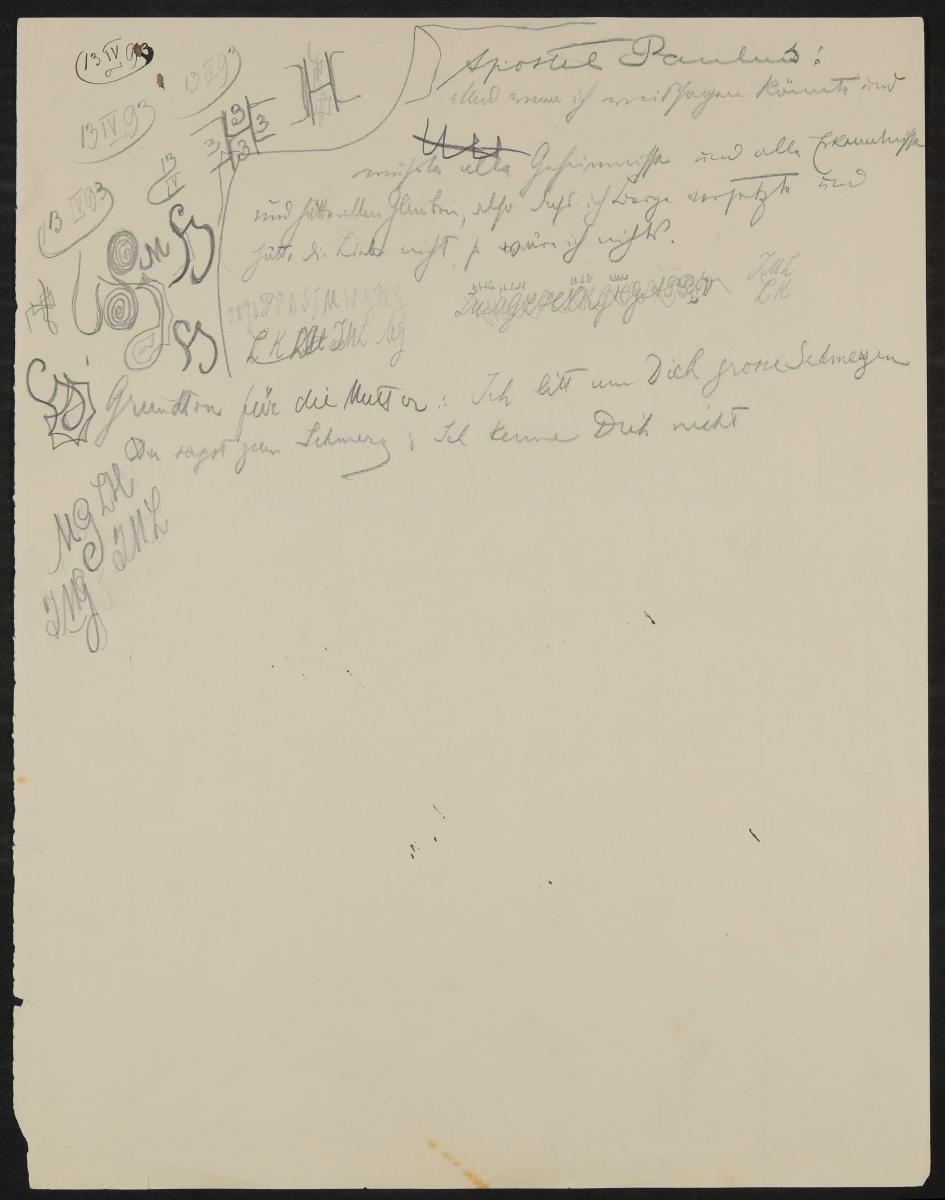 13 IV 93
13 IV 93
13 IV 93
13 IV
13 IV 93
3 3 3 3
H
Apostel Paulus:
Und wenn ich weissagen könnte und
wüsste alle Geheimnisse und alle Erkenntnisse
und hätte allen Glauben, also dass ich Berge versetzte und
hätte die Liebe nicht, so wäre ich nichts.
IML
LK
LK IML
Grundton für die Mutter: Ich litt um Dich grosse Schmerzen
Du sagst zum Schmerz: Ich kenne Dich nicht
Mg LK
IML
IMg